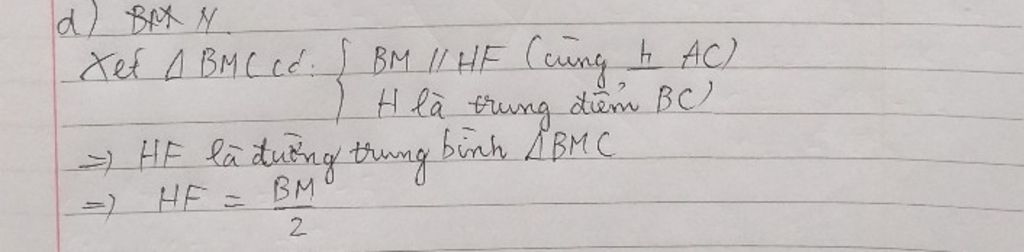 d) BM N
Xét Δ BMC có: { BM // HF (cùng ⊥ AC)
H là trung điểm BC)
=> HF là đường trung bình ΔBMC
=> HF = BM/2